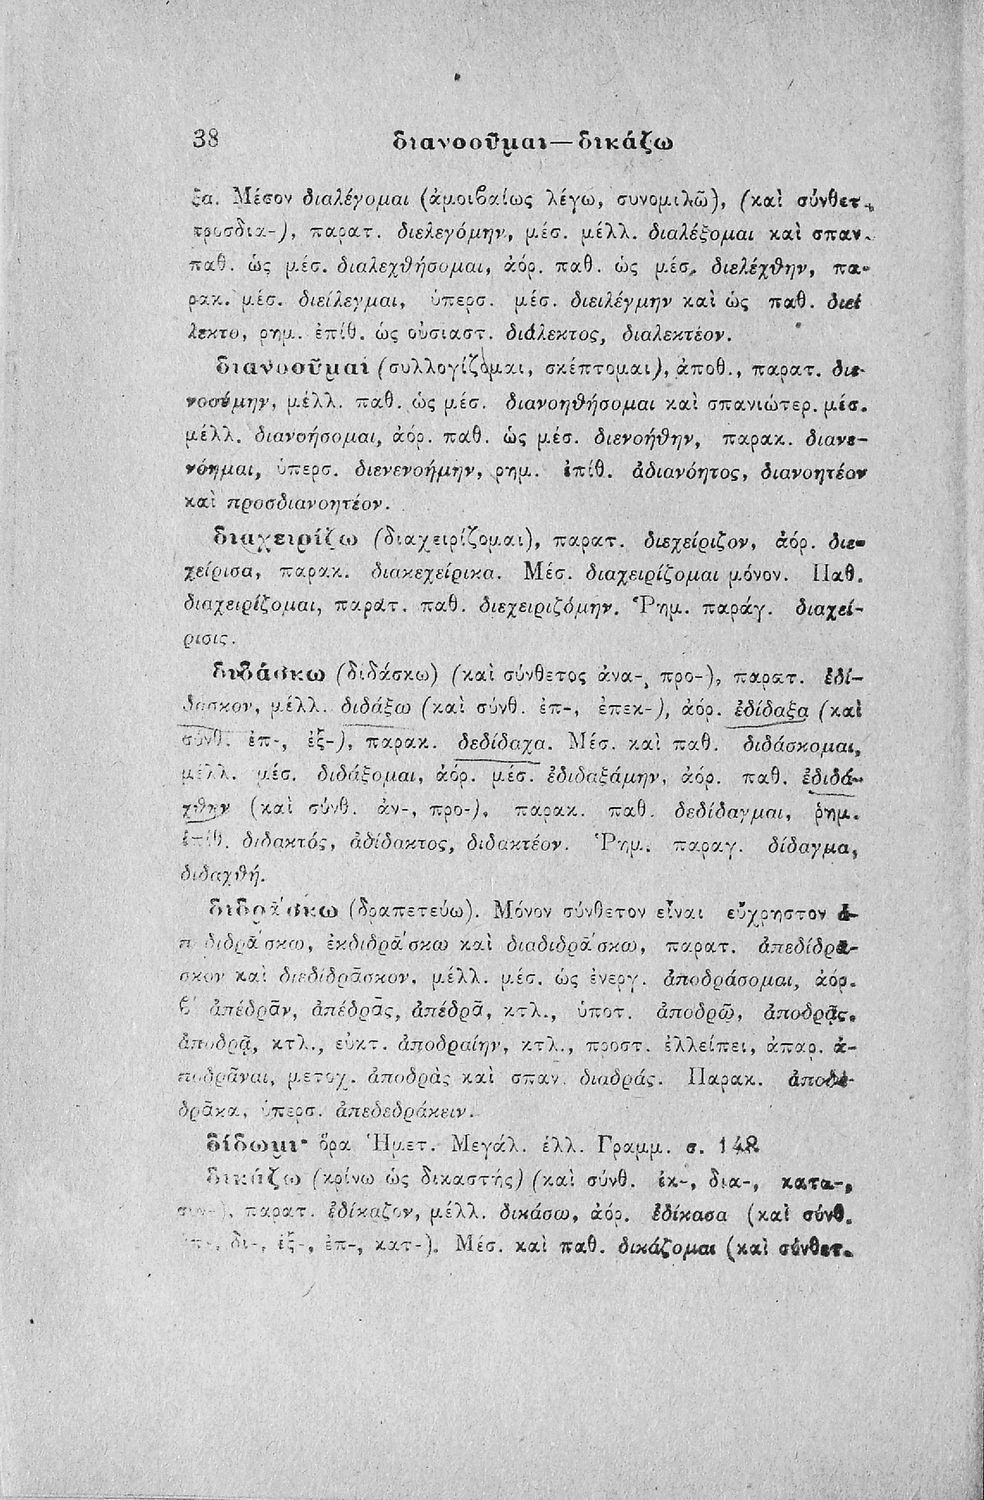 38 διανοοῦμαι—δικάζω
ξα. Μέσον διαλέγομαι (ἀμοιβαίως λέγω, συνομιλῶ), (καὶ σύνθετ.
προσδια-), παρατ. διελεγόμην, μέσ. μέλλ. διαλέξομαι καὶ σπαν.
παθ. ὡς μέσ. διαλεχθήσομαι, ἀόρ. παθ. ὡς μέσ. διελέχθην, πα-
ρακ. μέσ. διείλεγμαι, ὑπερσ. μέσ. διειλέγμην καὶ ὡς παθ. διεί
λεκτο, ρημ. ἐπίθ. ὡς οὐσιαστ. διάλεκτος, διαλεκτέον.
διανοοῦμαι (συλλογίζομαι, σκέπτομαι), ἀποθ., παρατ. διε-
νοούμην, μέλλ. παθ. ὡς μέσ. διανοηθήσομαι καὶ σπανιώτερ. μέσ.
μέλλ. διανοήσομαι, ἀόρ. παθ. ὡς μέσ. διενοήθην, παρακ. διανε-
νόημαι, ὑπερσ. διενενοήμην, ρημ. ἐπίθ. ἀδιανόητος, διανοητέον
καὶ προσδιανοητέον.
διαχειρίζω (διαχειρίζομαι), παρατ. διεχείριζον, ἀόρ. διε-
χείρισα, παρακ. διακεχείρικα. Μέσ. διαχειρίζομαι μόνον. Παθ.
διαχειρίζομαι, παρατ. παθ. διεχειριζόμην. Ῥημ. παράγ. διαχεί-
ρισις.
διδάσκω (διδάσκω) (καὶ σύνθετος ἀνα-, προ-), παρατ. ἐδί-
δασκον, μέλλ. διδάξω (καὶ σύνθ. ἐπ-, ἐπεκ-), ἀόρ. ἐδίδαξα (καὶ
σύνθ. ἐπ-, ἐξ-), παρακ. δεδίδαχα. Μέσ. καὶ παθ. διδάσκομαι,
μέλλ. μέσ. διδάξομαι, ἀόρ. μέσ. ἐδιδαξάμην, ἀόρ. παθ. ἐδιδά-
χθην (καὶ σύνθ. ἀν-, προ-), παρακ. παθ. δεδίδαγμαι, ῥημ.
ἐπίθ. διδακτός, ἀδίδακτος, διδακτέον. Ῥημ. παραγ. δίδαγμα,
διδαχθή.
διδρᾱ́σκω (δραπετεύω). Μόνον σύνθετον εἶναι εὔχρηστον ἀ-
πο διδρᾱ́σκω, ἐκδιδρᾱ́σκω καὶ διαδιδρᾱ́σκω, παρατ. ἀπεδίδρα-
σκον καὶ διεδίδρασκον, μέλλ. μέσ. ὡς ἐνεργ. ἀποδράσομαι, ἀόρ.
β′ ἀπέδρᾱν, ἀπέδρᾱς, ἀπέδρᾱ, κτλ., ὑποτ. ἀποδρῶ, ἀποδρᾷς,
ἀποδρᾷ, κτλ., εὐκτ. ἀποδραίην, κτλ., προστ. ἐλλείπει, ἀπαρ. ἀ-
ποδρᾶναι, μετοχ. ἀποδρὰς καὶ σπαν. διαδράς. Παρακ. ἀποδέ-
δρακα, ὑπερσ. ἀπεδεδράκειν.
δίδωμι· ὅρα Ἡμετ. Μεγάλ. ἑλλ. Γραμμ. σ. 148
δικάζω (κρίνω ὡς δικαστής) (καὶ σύνθ. ἐκ-, δια-, κατα-,
συν-), παρατ. ἐδίκαζον, μέλλ. δικάσω, ἀόρ. ἐδίκασα (καὶ σύνθ.
δι-, ἐξ-, ἐπ-, κατ-). Μέσ. καὶ παθ. δικάζομαι (καὶ σύνθετ.